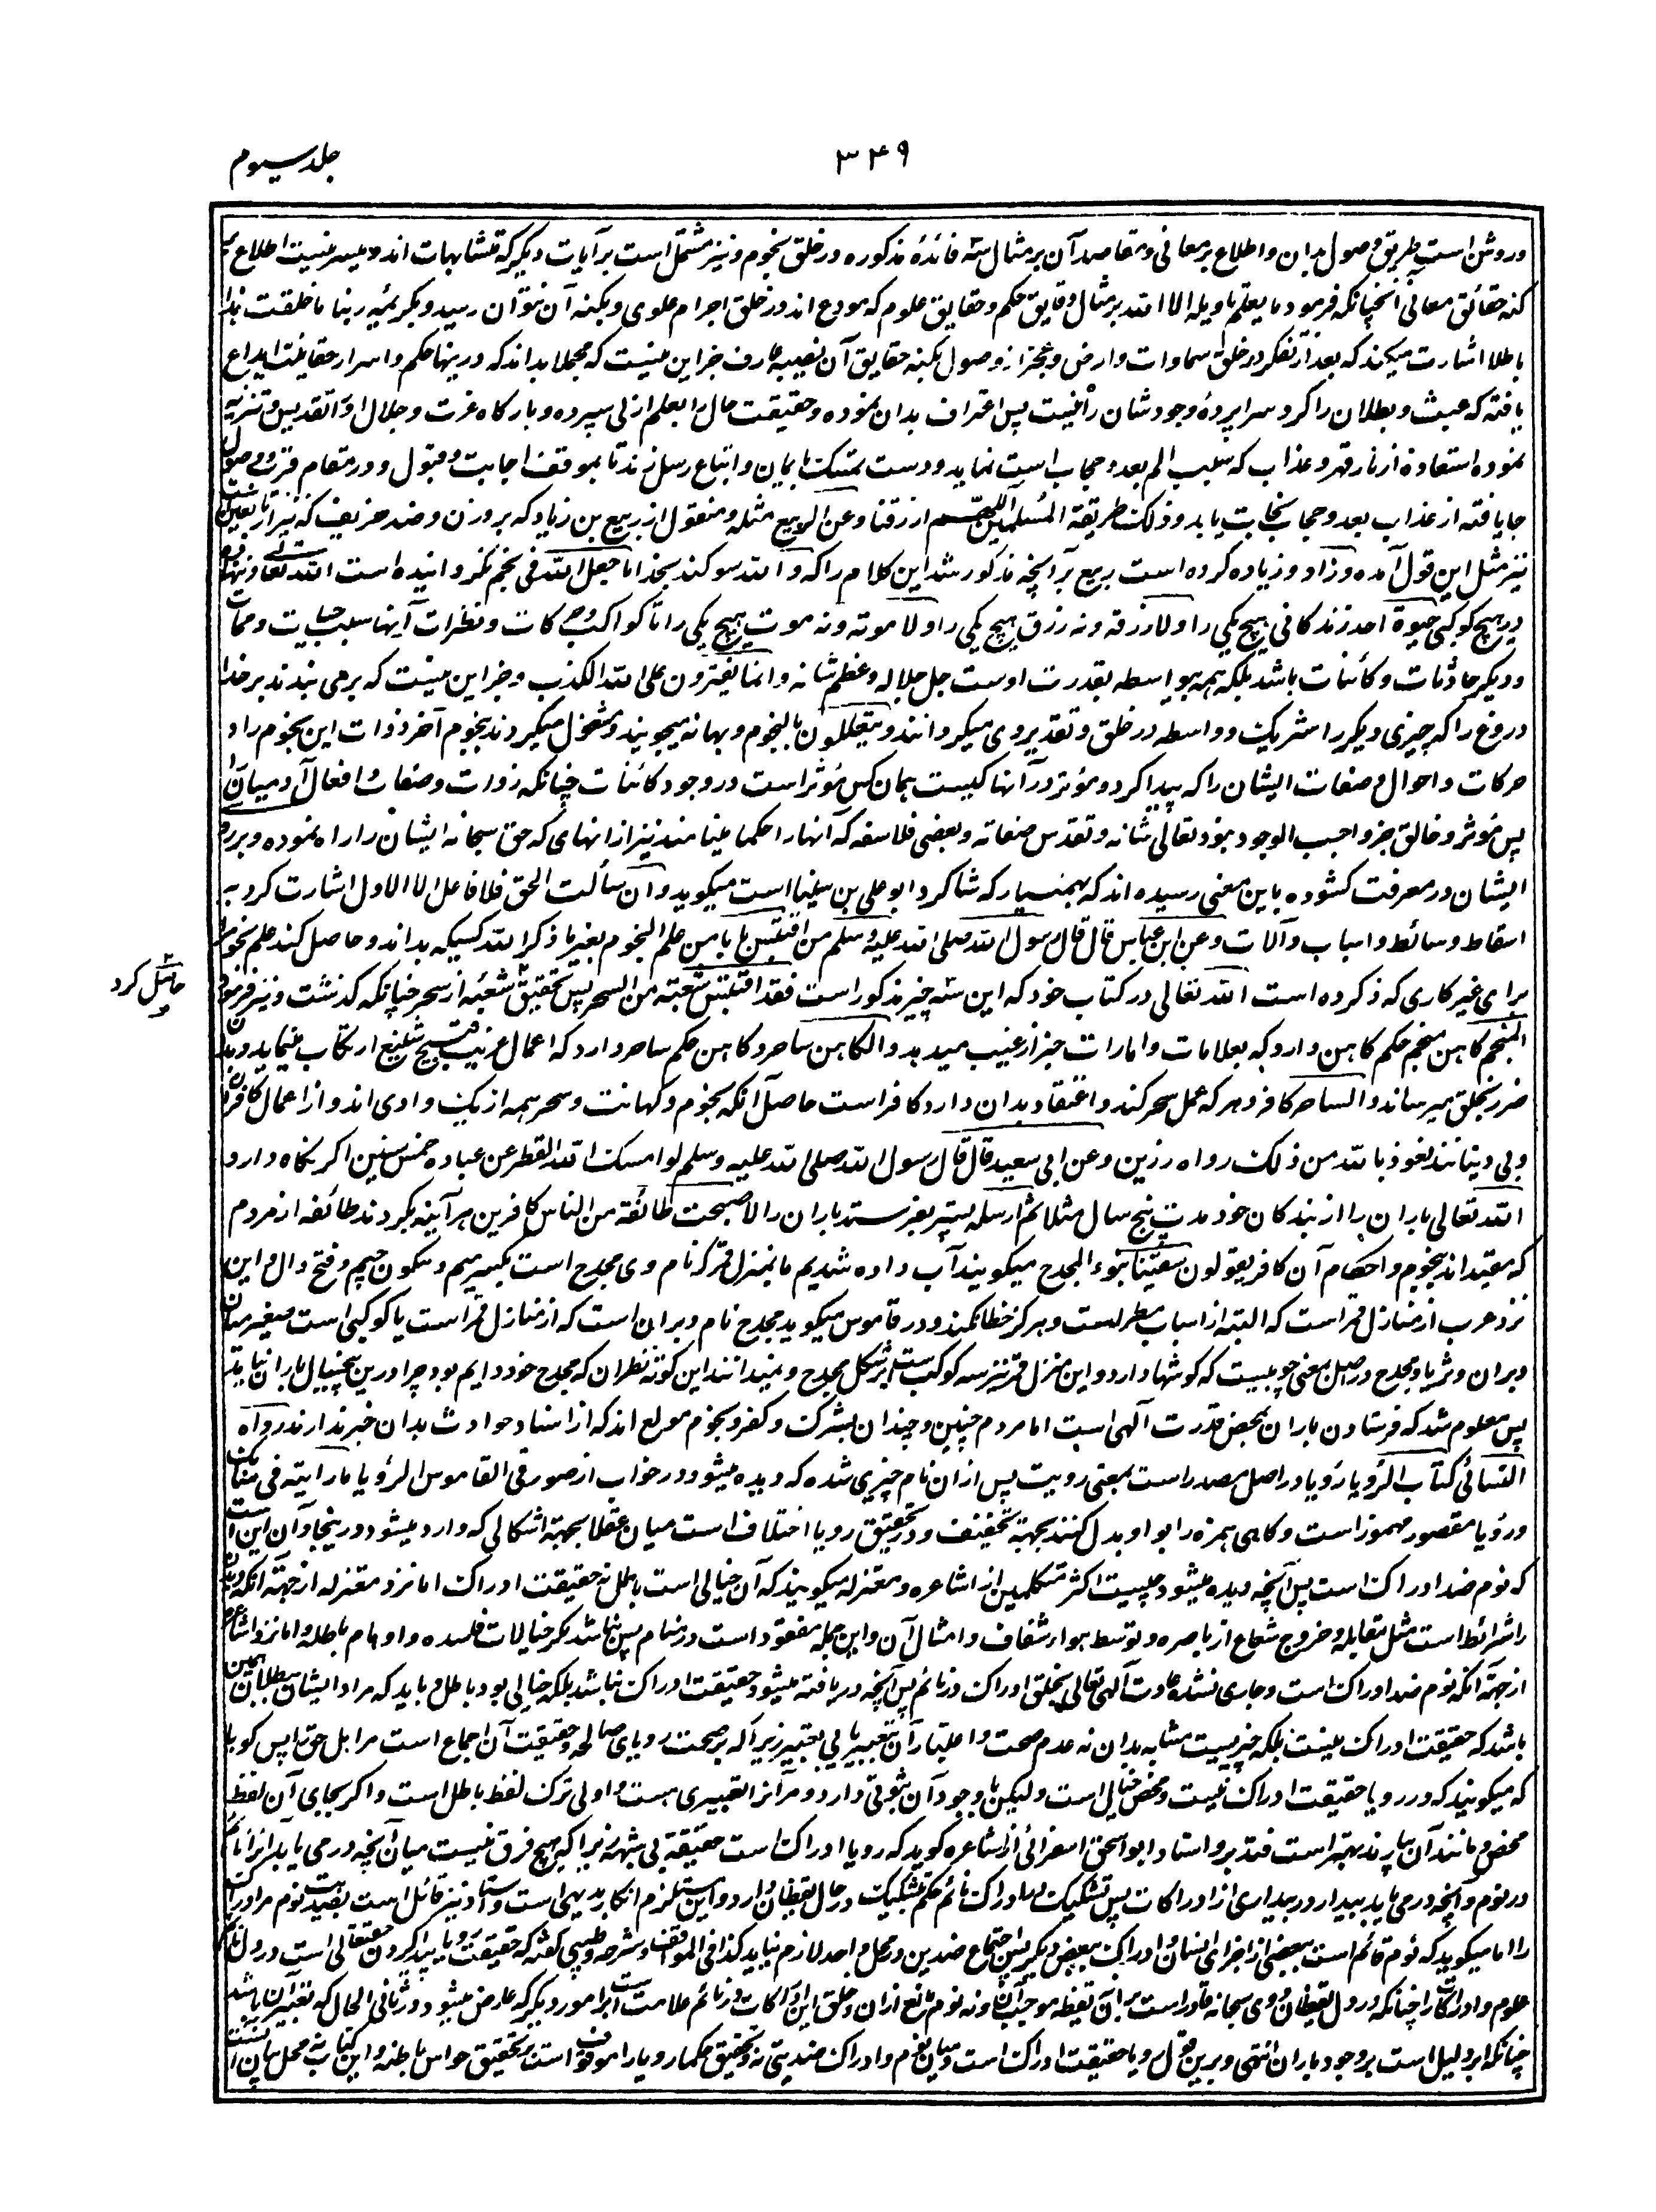 جلد سیوم
۳۴۹
وروشن است طریق وصول بدان واطلاع بر معانی ومقاصد آن بر مثال سه فائدهٔ مذکوره در خلق نجوم ونیز مشتمل است بر آیات دیگر که متشابهات اند ومیسر نیست اطلاع بر
کنه حقائق معانی آنچنانکه فرمود ما یعلم تاویله الا الله بر مثال دقایق حکم وحقایق علوم که مودع اند در خلق اجرام علوی وبکنه آن نتوان رسید وبکریمهٔ ربنا ما خلقت هذا
باطلا اشارت میکند که بعد از تفکر در خلق سماوات وارض وعجز از وصول بکنه حقایق آن نصیبهٔ عارف جز این نیست که مجملا بداند که درینها حکم واسرار حقانیت ابداع
یافته که عبث وبطلان را گرد سراپردهٔ وجود شان راه نیست پس اعتراف بدان نموده وحقیقت حال را بعلم ازلی سپرده وبارگاه عزت وجلال او را تقدیس وتنزیه
نموده استعاذه از نار قهر وعذاب که سبب الم بعد وحجاب است نماید ودست تمسک بایمان واتباع رسل زند تا بموقف اجابت وقبول ودر مقام قرب ووصول
جا یافته از عذاب بعد وحجاب نجات یابد وذلک طریقة المسلمین اللهم ارزقنا وعن الربیع مثله ومنقول از ربیع بن زیاد که بر وزن وضد خریف که نیز از تابعین است
نیز مثل این قول آمده وزاد وزیاده کرده است ربیع بر آنچه مذکور شد این کلام را که والله سوگند بخدا ما جعل الله فی نجم نگردانیده است الله تعالی ونهاده
در هیچ کوکبی حیوة احد زندگانی هیچ یکی را ولا رزقه ونه رزق هیچ یکی را ولا موته ونه موت هیچ یکی را تا کواکب وحرکات ونظرات آنها سبب حیات وممات
ودیگر حادثات وکائنات باشد بلکه همه بیواسطه بقدرت اوست جل جلاله وعظم شانه وانما یفترون علی الله الکذب وجز این نیست که بر می بندند بر خدا
دروغ را که چیزی دیگر را شریک وواسطه در خلق وتقدیر وی میگردانند ویتعللون بالنجوم وبهانه میجویند ومشغول میگردند بنجوم آخر ذوات این نجوم را و
حرکات واحوال وصفات ایشان را که پیدا کرد ومؤثر در آنها کیست همان کس مؤثر است در وجود کائنات چنانکه ذوات وصفات وافعال آدمیان را
پس مؤثر وخالق جز واجب الوجود نبود تعالی شانه وتقدس صفاته وبعضی فلاسفه که آنها را حکما مینامند نیز ازانهای که حق سبحانه ایشان را راه نموده وبر روی
ایشان در معرفت کشوده باین معنی رسیده اند که بهمنیار که شاگرد ابو علی بن سیناست میگوید وان سألت الحق فلا فاعل الا الاول اشارت کرد به
اسقاط وسائط واسباب وآلات وعن ابن عباس قال قال رسول الله صلی الله علیه وسلم من اقتبس بابا من علم النجوم بغیر ما ذکر الله کسیکه بداند وحاصل کند علم نجوم را
برای غیر کاری که ذکر کرده است الله تعالی در کتاب خود که این سه چیز مذکور است فقد اقتبس شعبة من السحر پس تحقیق شعبهٔ از سحر چنانکه گذشت ونیز فرمود
حاصل کرد
المنجم کاهن منجم حکم کاهن دارد که بعلامات وامارات خبر از غیب میدهد والکاهن ساحر وکاهن حکم ساحر دارد که اعمال غریب قبیح شنیع ارتکاب مینماید وبدان
ضرر بخلق میرساند والساحر کافر وهر که عمل سحر کند واعتقاد بدان دارد کافر است حاصل آنکه نجوم وکهانت وسحر همه از یک وادی اند واز اعمال کافران
وبی دینانند نعوذ بالله من ذلک رواه رزین وعن ابی سعید قال قال رسول الله صلی الله علیه وسلم لو امسک الله القطر عن عباده خمس سنین اگر نگاه دارد
الله تعالی باران را از بندگان خود مدت پنج سال مثلا ثم ارسله پستر بفرستد باران را لاصبحت طائفة من الناس کافرین هر آینه بگردند طائفه از مردم
که مقید اند بنجوم واحکام آن کافر یقولون سقینا بنوء المجدح میگویند آب داده شدیم ما بمنزل قمر که نام وی مجدح است بکسر میم وسکون جیم وفتح دال واین
نزد عرب از منازل قمر است که البته از اسباب مطر است وهرگز خطا نکند ودر قاموس میگوید مجدح نام دبران است که از منازل قمر است یا کوکبی است صغیر میان
دبران وثریا ومجدح در اصل بمعنی چوبیست که گوشها دارد واین منزل قمر نیز سه کوکب ست بر شکل مجدح ونمیدانند این کوته نظران که مجدح خود دایم بود چرا درین پنجسال باران نیامد
پس معلوم شد که فرستادن باران بمحض قدرت الهی است اما مردم چنین وچندان بشرک وکفر ونجوم مولع اند که از اسناد حوادث بدان خبر ندارند رواه
النسائی کتاب الرؤیا رؤیا در اصل مصدر است بمعنی رویت پس ازان نام چیزی شده که دیده میشود در خواب از صور فی القاموس الرؤیا ما رایته فی منامک
ورؤیا مقصور مهموز است وگاهی همزه را بواو بدل کنند بجهة تخفیف ودر تحقیق رویا اختلاف است میان عقلا بجهة اشکالی که وارد میشود درینجا وآن این است
که نوم ضد ادراک است پس آنچه دیده میشود چیست اکثر متکلمین از اشاعره ومعتزله میگویند که آن خیالی است باطل نه حقیقت ادراک اما نزد معتزله از جهة آنکه دیدن
را شرائط است مثل مقابله وخروج شعاع از باصره وتوسط هوا وشفاف وامثال آن واین جمله مفقود است در منام پس نباشد مگر خیالات فاسده واوهام باطله واما نزد اشاعره
از جهة آنکه نوم ضد ادراک است وجاری نشده عادت الهی تعالی بخلق ادراک در نائم پس آنچه دریافته میشود حقیقت ادراک نباشد بلکه خیالی بود باطل وباید که مراد ایشان ببطلان همین
باشد که حقیقت ادراک نیست بلکه چیزیست مشابه بدان نه عدم صحت واعتبار آن بتعبیر یا بی تعبیر زیرا که بر صحت رویای صالحه وحقیقت آن اجماع است مر اهل حق را پس گویا
که میگویند که در رویا حقیقت ادراک نیست ومحض خیالی است ولیکن با وجود آن ثبوتی دارد ومر آنرا تعبیری هست واولی ترک لفظ باطل است واگر بجای آن لفظ
محض ومانند آن بیارند بهتر است فتدبر واستاد ابو اسحق اسفرائنی از اشاعره گوید که رویا ادراک است حقیقة بی شبهه زیرا که هیچ فرق نیست میان آنچه در می یابد آنرا نائم
در نوم وآنچه در می یابد بیدار در بیداری از ادراکات پس تشکیک در ادراک نائم حکم تشکیک در حال یقظان دارد واین مستلزم انکار بدیهی است واستاد نیز قائل است بضدیت نوم مر ادراک
را اما میگوید که نوم قائم است ببعضی از اجزای انسان وادراک ببعض دیگر پس اجتماع ضدین در محل واحد لازم نیاید کذا فی المواقف وشرحه وطیبی گفته که حقیقت رویا پیدا کردن حقتعالی است در دل نائم
علوم وادراکات را چنانکه در دل یقظان ووی سبحانه قادر است بر آن نه یقظه موجب آن ونه نوم مانع ازان وخلق این ادراکات در نائم علامت است بر امور دیگر که عارض میشود در ثانی الحال که تعبیر آن باشد
چنانکه ابر دلیل است بر وجود باران انتهی وبرین قول رویا حقیقت ادراک است ومیان نوم وادراک ضدیتی نه وتحقیق حکما رویا را موقوف است بر تحقیق حواس باطنه واین کتاب نه محل بیان آنست